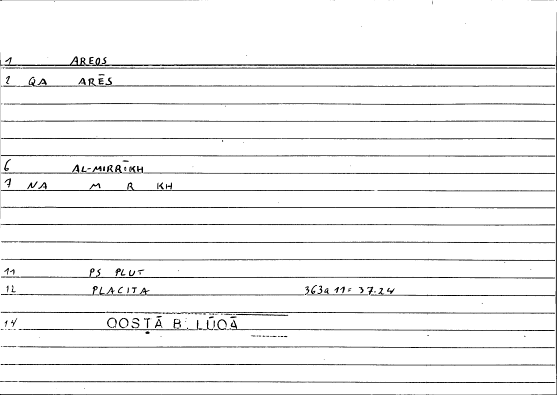 1 AREOS
2 QA ARĒS
6 AL-MIRRĪKH
7 NA M R KH
11 PS PLUT
12 PLACITA 363a 11 = 37.24
14 QOSṬĀ B. LŪQĀ